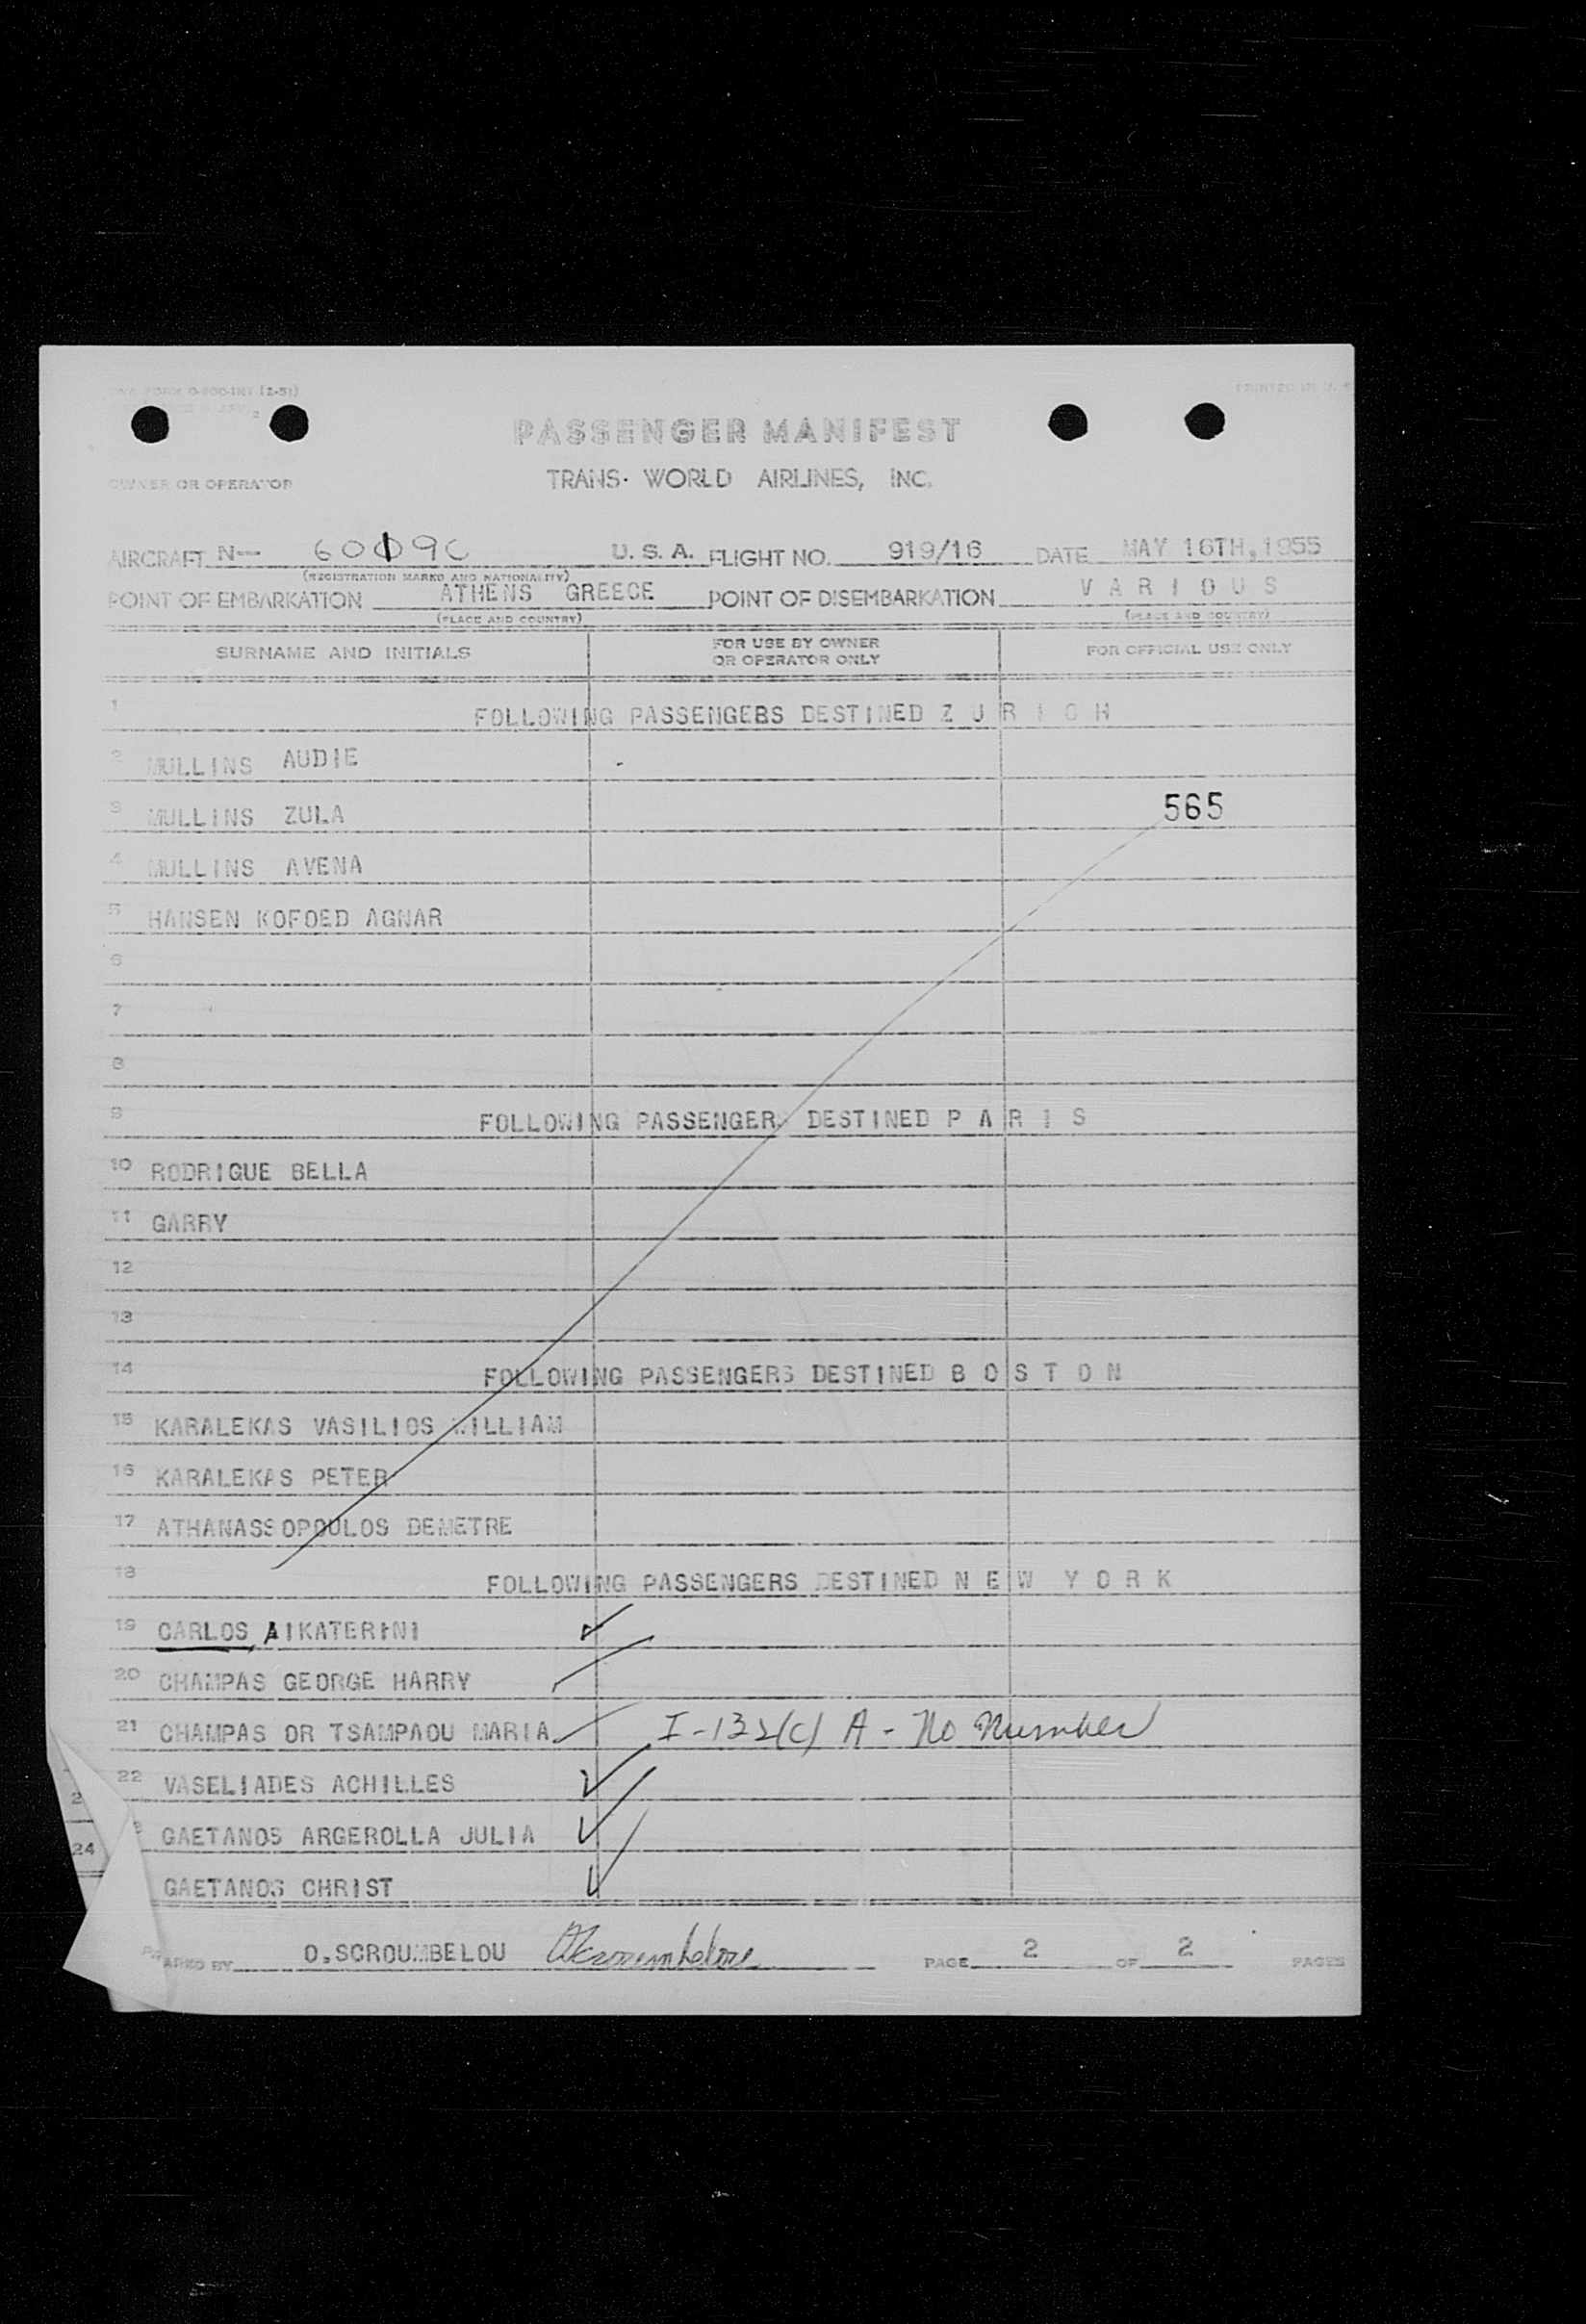 PASSENGER MANIFEST
OWNER OR OPERATOR TRANS· WORLD AIRLINES, INC.
AIRCRAFT N— 60 9C U. S. A. FLIGHT NO. 919/16 DATE MAY 16TH, 1955
(REGISTRATION MARKS AND NATIONALITY)
POINT OF EMBARKATION ATHENS GREECE POINT OF DISEMBARKATION VARIOUS
(PLACE AND COUNTRY) (PLACE AND COUNTRY)
SURNAME AND INITIALS FOR USE BY OWNER OR OPERATOR ONLY FOR OFFICIAL USE ONLY
1 FOLLOWING PASSENGERS DESTINED Z U R I C H
2 MULLINS AUDIE
3 MULLINS ZULA 565
4 MULLINS AVENA
5 HANSEN KOFOED AGNAR
6
7
8
9 FOLLOWING PASSENGERS DESTINED P A R I S
10 RODRIGUE BELLA
11 GARRY
12
13
14 FOLLOWING PASSENGERS DESTINED B O S T O N
15 KARALEKAS VASILIOS WILLIAM
16 KARALEKAS PETER
17 ATHANASSOPOULOS DEMETRE
18 FOLLOWING PASSENGERS DESTINED N E W Y O R K
19 CARLOS, AIKATERINI
20 CHAMPAS GEORGE HARRY
21 CHAMPAS OR TSAMPAOU MARIA I-132(C) A - No Number
22 VASELIADES ACHILLES
GAETANOS ARGEROLLA JULIA
24 GAETANOS CHRIST
O.SCROUMBELOU OScroumbelou PAGE 2 OF 2 PAGES